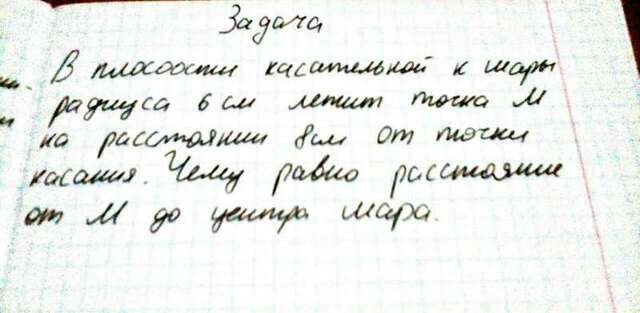 Задача
В плоскости касательной к шары
радиуса 6 см лежит точка М
на расстоянии 8см от точки
касания. Чему равно расстояние
от М до центра шара.